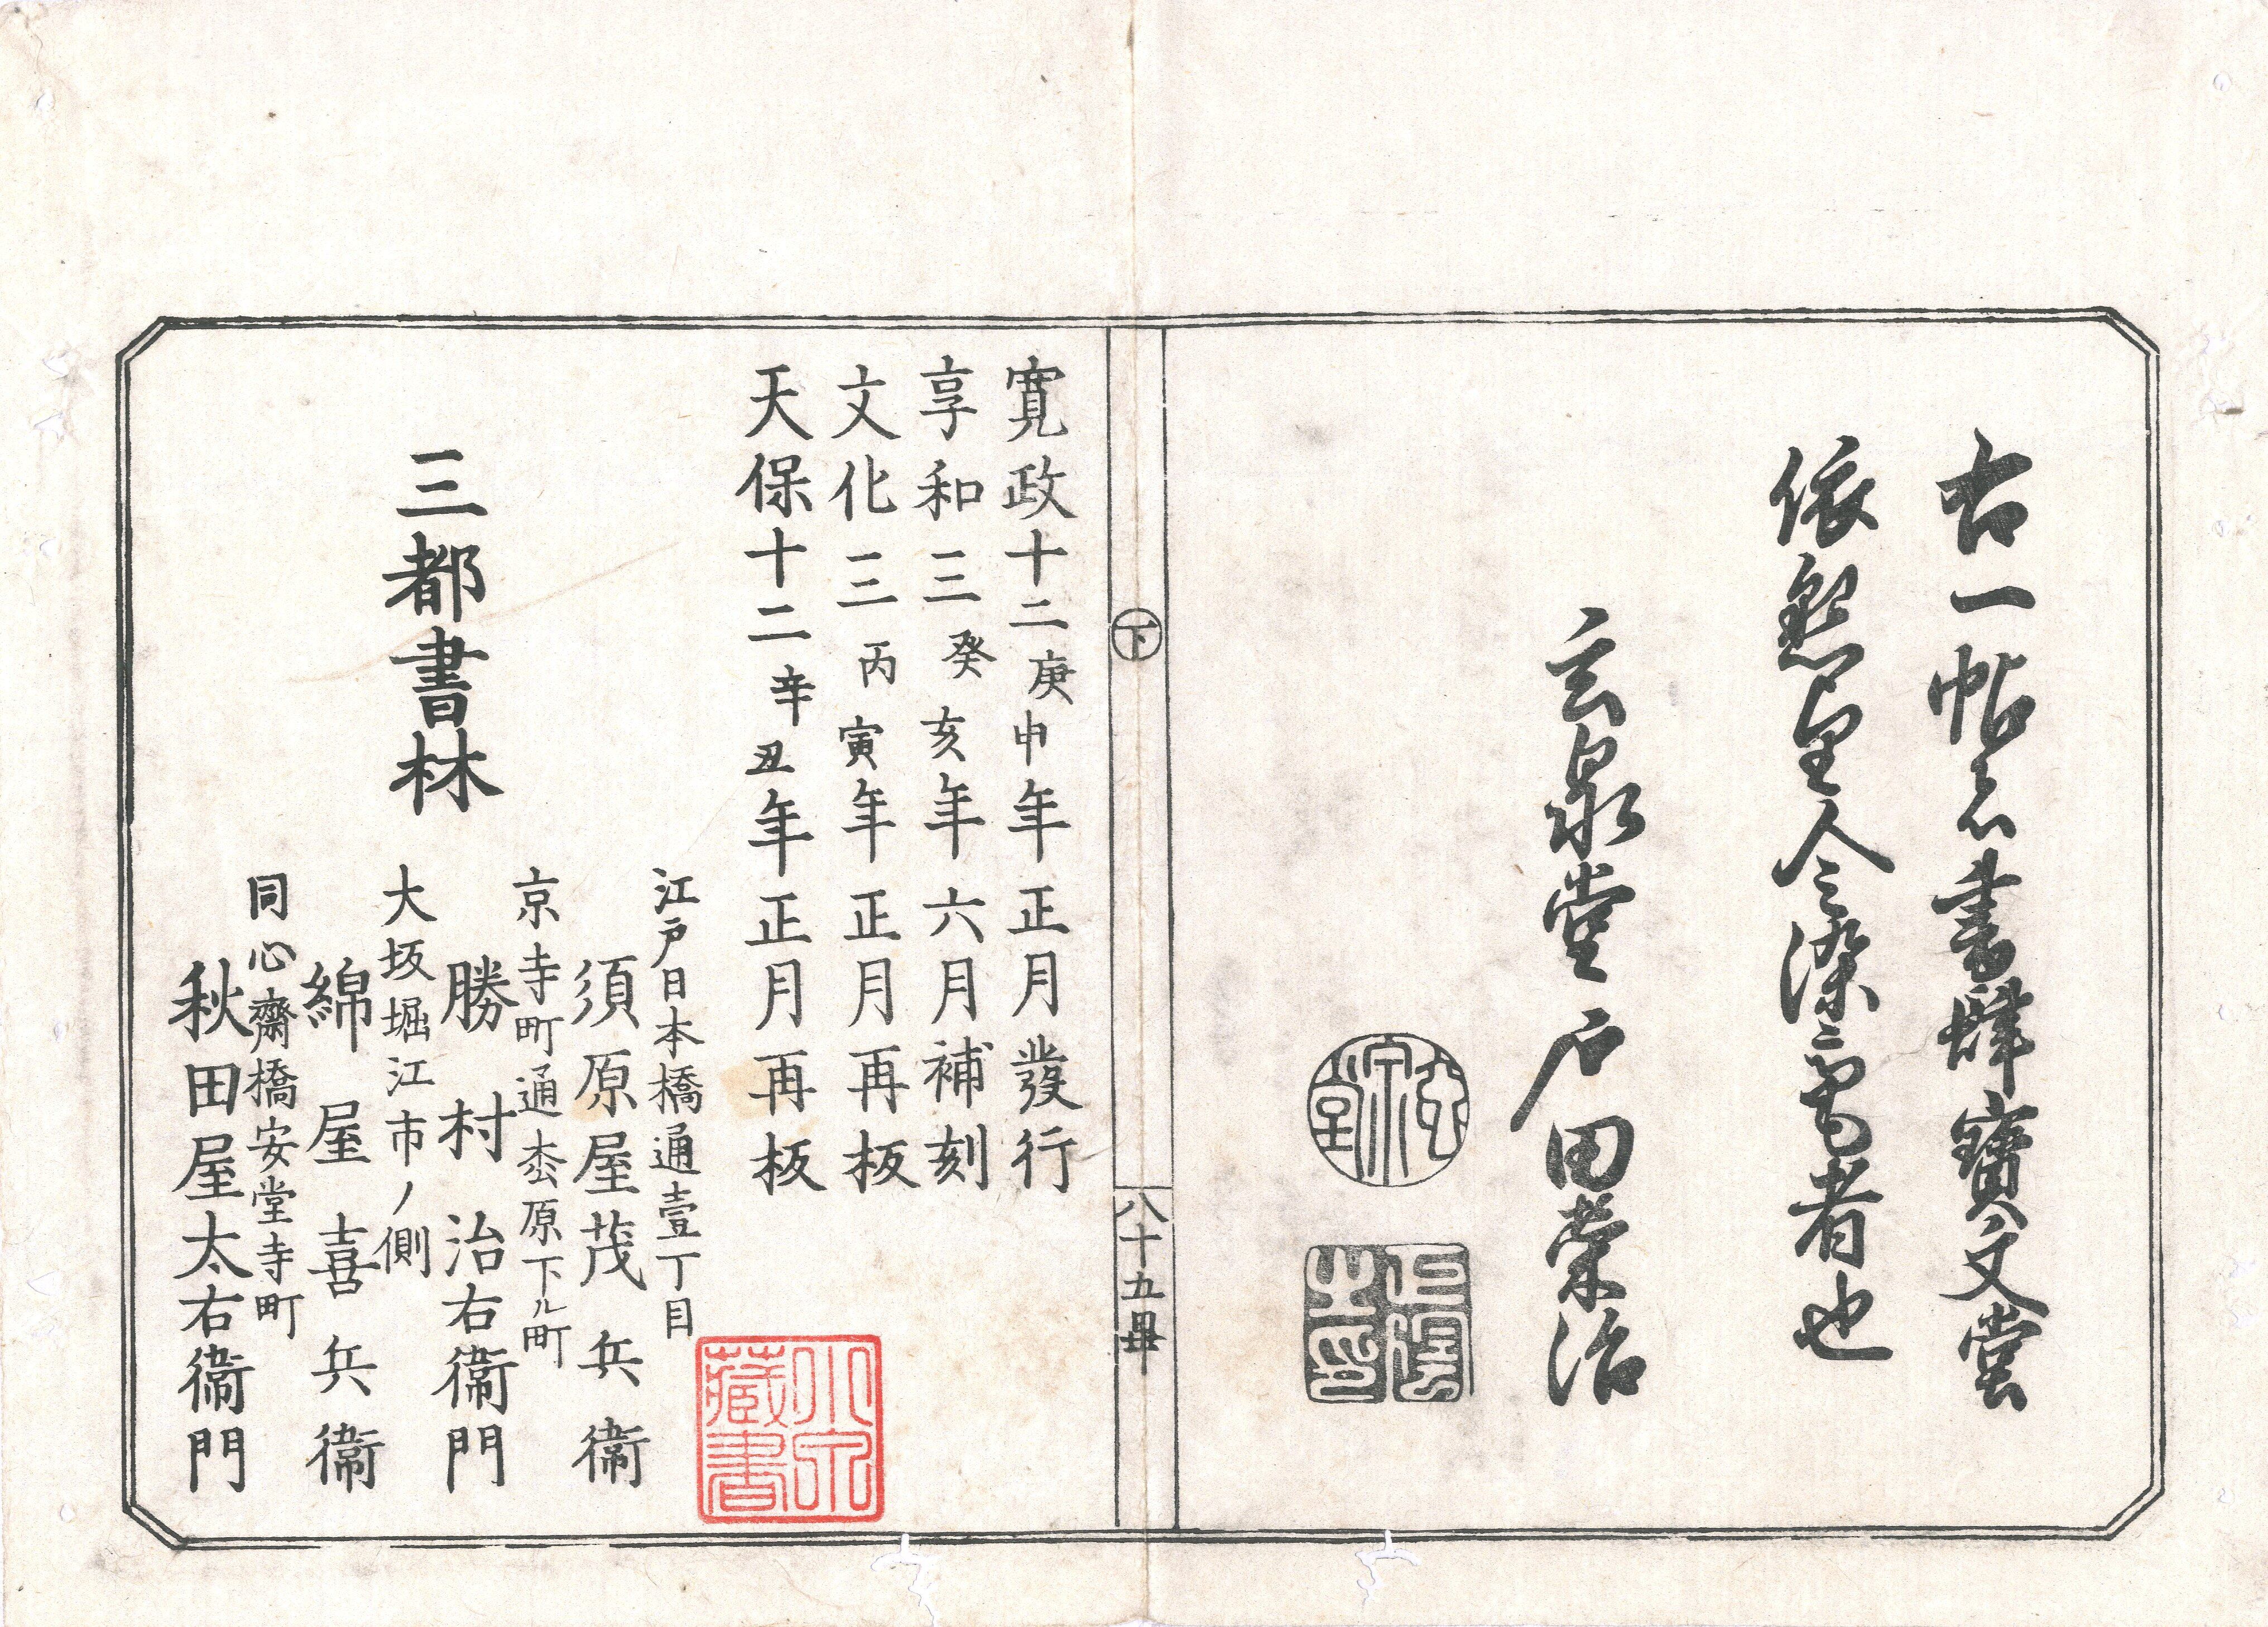 右一帖者書肆寶文堂
依懇望令染毫者也
玄泉堂戸田榮治
玄泉堂
下
八十五畢
寛政十二庚申年正月發行
享和三癸亥年六月補刻
文化三丙寅年正月再板
天保十二辛丑年正月再板
江戸日本橋通壹丁目
須原屋茂兵衞
京寺町通枩原下ル町
勝村治右衞門
大坂堀江市ノ側
綿屋喜兵衞
同心齋橋安堂寺町
秋田屋太右衞門
三都書林
藏書